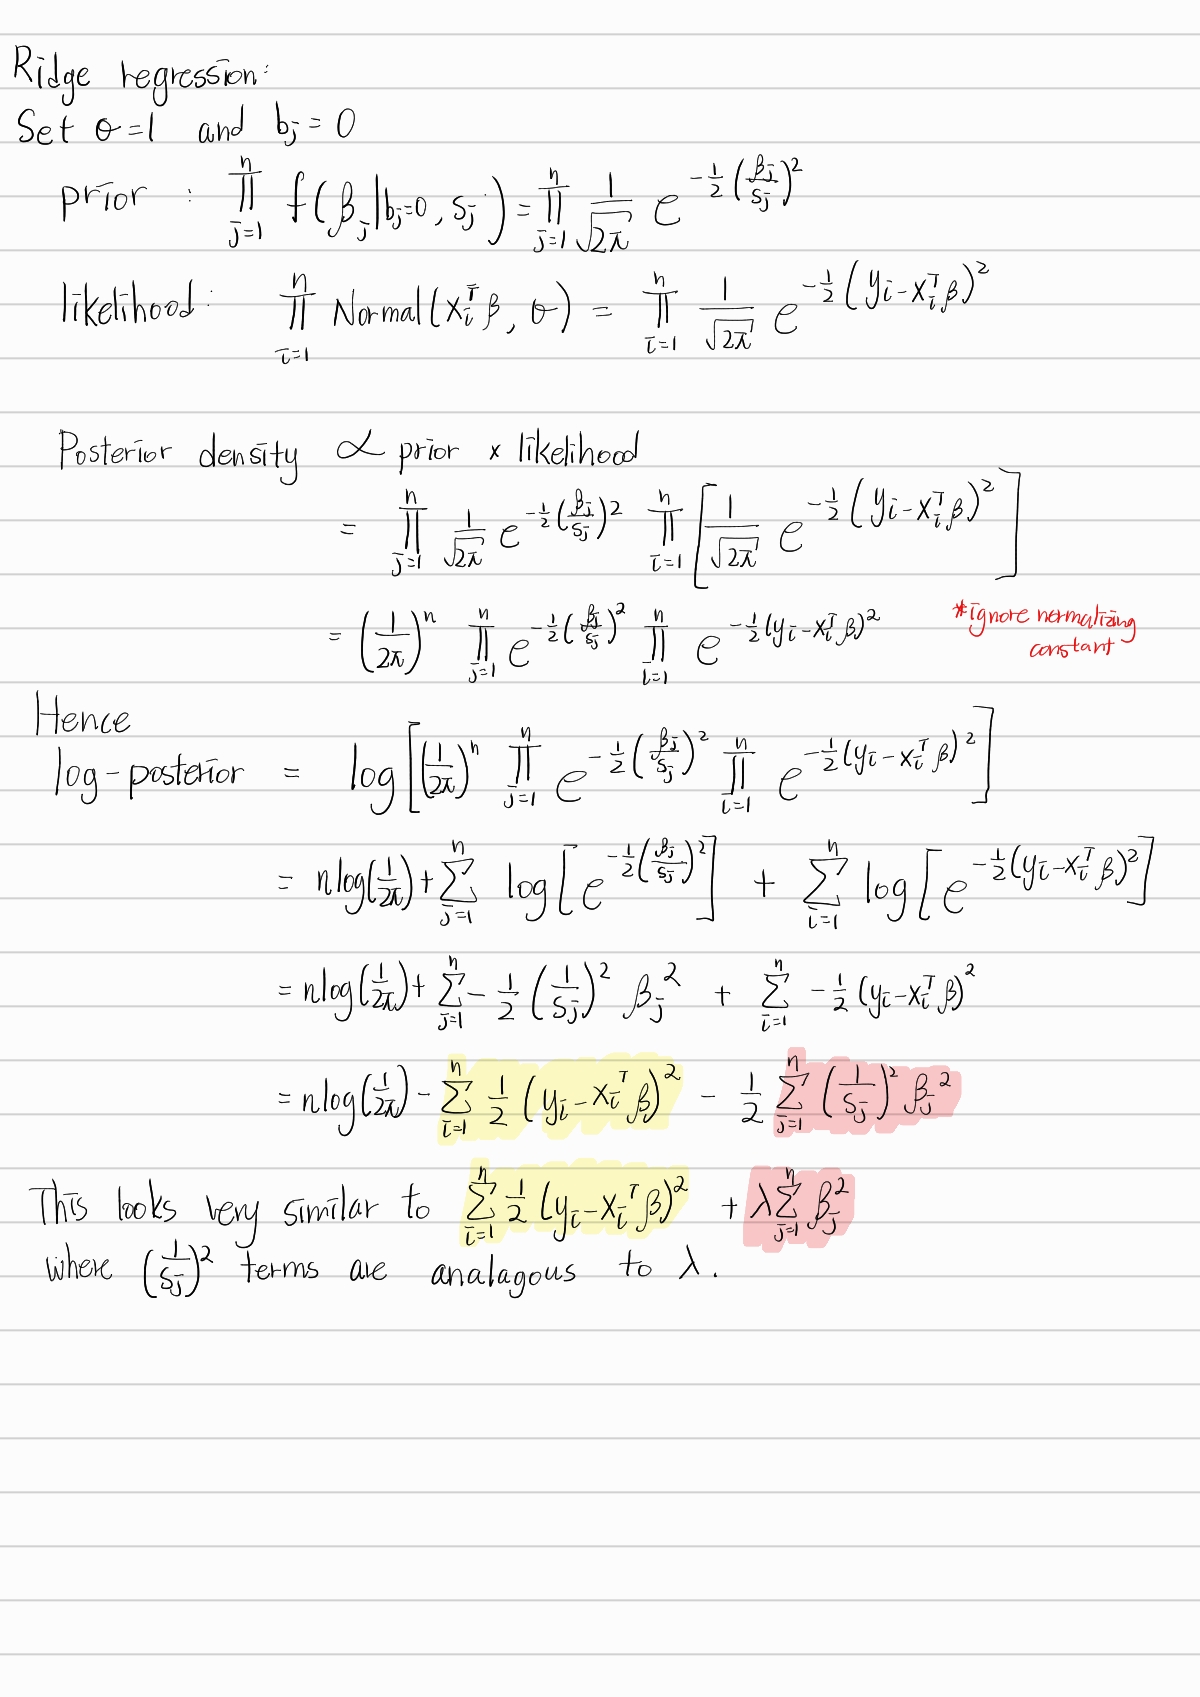 Ridge regression:
Set σ=1 and bⱼ = 0
prior : ∏_{j=1}^{n} f(βⱼ|bⱼ=0, sⱼ) = ∏_{j=1}^{n} 1/√2π e^{-1/2 (βⱼ/sⱼ)²}
likelihood: ∏_{i=1}^{n} Normal(xᵢᵀβ, σ) = ∏_{i=1}^{n} 1/√2π e^{-1/2 (yᵢ-xᵢᵀβ)²}
Posterior density ∝ prior × likelihood
= ∏_{j=1}^{n} 1/√2π e^{-1/2 (βⱼ/sⱼ)²} ∏_{i=1}^{n} [1/√2π e^{-1/2 (yᵢ-xᵢᵀβ)²}]
= (1/2π)ⁿ ∏_{j=1}^{n} e^{-1/2 (βⱼ/sⱼ)²} ∏_{i=1}^{n} e^{-1/2 (yᵢ-xᵢᵀβ)²}
*ignore normalizing
constant
Hence
log-posterior = log[(1/2π)ⁿ ∏_{j=1}^{n} e^{-1/2 (βⱼ/sⱼ)²} ∏_{i=1}^{n} e^{-1/2 (yᵢ-xᵢᵀβ)²}]
= nlog(1/2π) + ∑_{j=1}^{n} log[e^{-1/2 (βⱼ/sⱼ)²}] + ∑_{i=1}^{n} log[e^{-1/2 (yᵢ-xᵢᵀβ)²}]
= nlog(1/2π) + ∑_{j=1}^{n} - 1/2 (1/sⱼ)² βⱼ² + ∑_{i=1}^{n} -1/2 (yᵢ-xᵢᵀβ)²
= nlog(1/2π) - ∑_{i=1}^{n} 1/2 (yᵢ-xᵢᵀβ)² - 1/2 ∑_{j=1}^{n} (1/sⱼ)² βⱼ²
This looks very similar to ∑_{i=1}^{n} 1/2 (yᵢ-xᵢᵀβ)² + λ∑_{j=1}^{n} βⱼ²
where (1/sⱼ)² terms are analagous to λ.